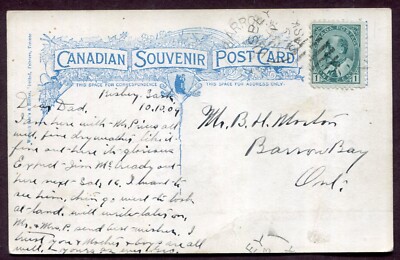 CANADIAN SOUVENIR POST CARD
THIS SPACE FOR CORRESPONDENCE
THIS SPACE FOR ADDRESS ONLY.
Sask
10.10.09
Dad,
I am here with Mr. all
well, fine dry weather, like it
fine out here its glorious
Jim out
here next Sat, 16. I want to
see him, then go west to look
at land. will write later on,
Mr. & Mrs. P. send best wishes. I
trust you & Mother & boys are all
well,
Mr. B. H. Morton
Barrow Bay
Ont.
1 1